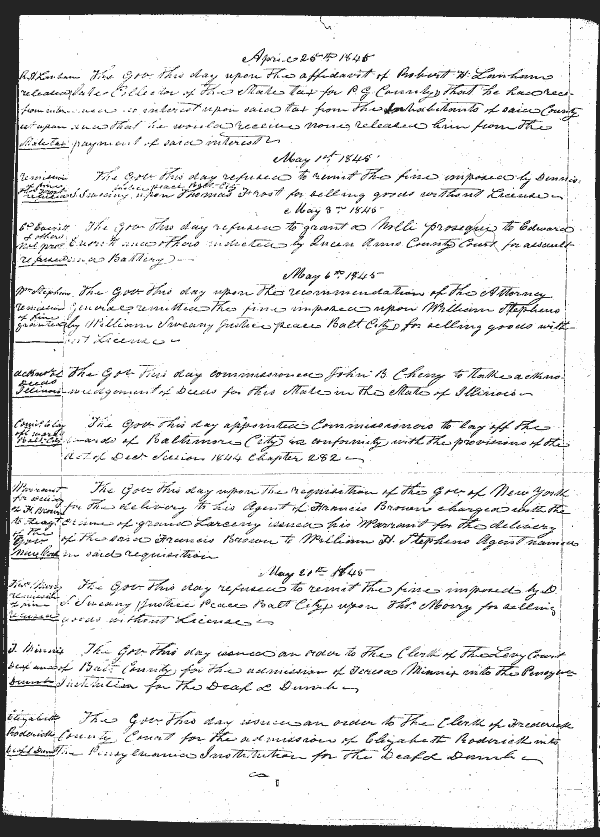 April 25th 1845
R. H. Lanham The Gov. this day upon the affidavit of Robert H. Lanham
released State Collector of the State tax for P G County, that he had rec-
from inter- no interest upon said tax from the Inhabitants of said County
est upon and that he would receive none released him from the
State tax payment of said interest
May 1st 1845
remission The Gov this day refused to remit the fine imposed by Dennis
of fine Justice peace Balt City
refused Sweeny upon Thomas Frost for selling goods without License
May 3rd 1845
Ed Everett The Gov this day refused to grant a Nolli prosequi to Edward
& others Everett and others indicted by Queen Anns County Court, for assault
nol pros
refused and Battery
May 6th 1845
Wm Stephens The Gov this day upon the recommendation of the Attorney
remission General remitted the fine imposed upon William Stephens
of fine
granted by William Sweany Justice peace Balt City, for selling goods with
out License
acknowl The Gov this day commissioned John B. Cherry to take acknow
Deeds
Illinois wledgement of Deeds for this State in the State of Illinois
Comrs to lay The Gov this day appointed Commissioners to lay off the
off wards
Balt City wards of Baltimore City in conformity with the provisions of the
Act of Decr Session 1844 Chapter 282
Warrant The Gov this day upon the requisition of the Gov of New York
for delivery for the delivery to his Agent of Francis Brown charged with the
of F. Brown
to Steph crime of grand Larceny issued his Warrant for the delivery
to the
Gov of the said Francis Brown to William H. Stephens Agent named
New York in said requisition
May 21st 1845
Thos Morry The Gov this day refused to remit the fine imposed by D.
remission
of fine S. Sweany Justice Peace Balt City upon Thos Morry for selling
refused goods without License
T. Minnis The Gov this day issued an order to the Clerk of the Levy Court
deaf and of Balt County, for the admission of Teresa Minnis into the Pensylva
Dumb Institution for the Deaf & Dumb
Elizabeth The Gov this day issued an order to the Clerk of Frederick
Roderick County Court for the admission of Elizabeth Roderick into
Deaf & Dumb the Pensylvania Institution for the Deaf & Dumb